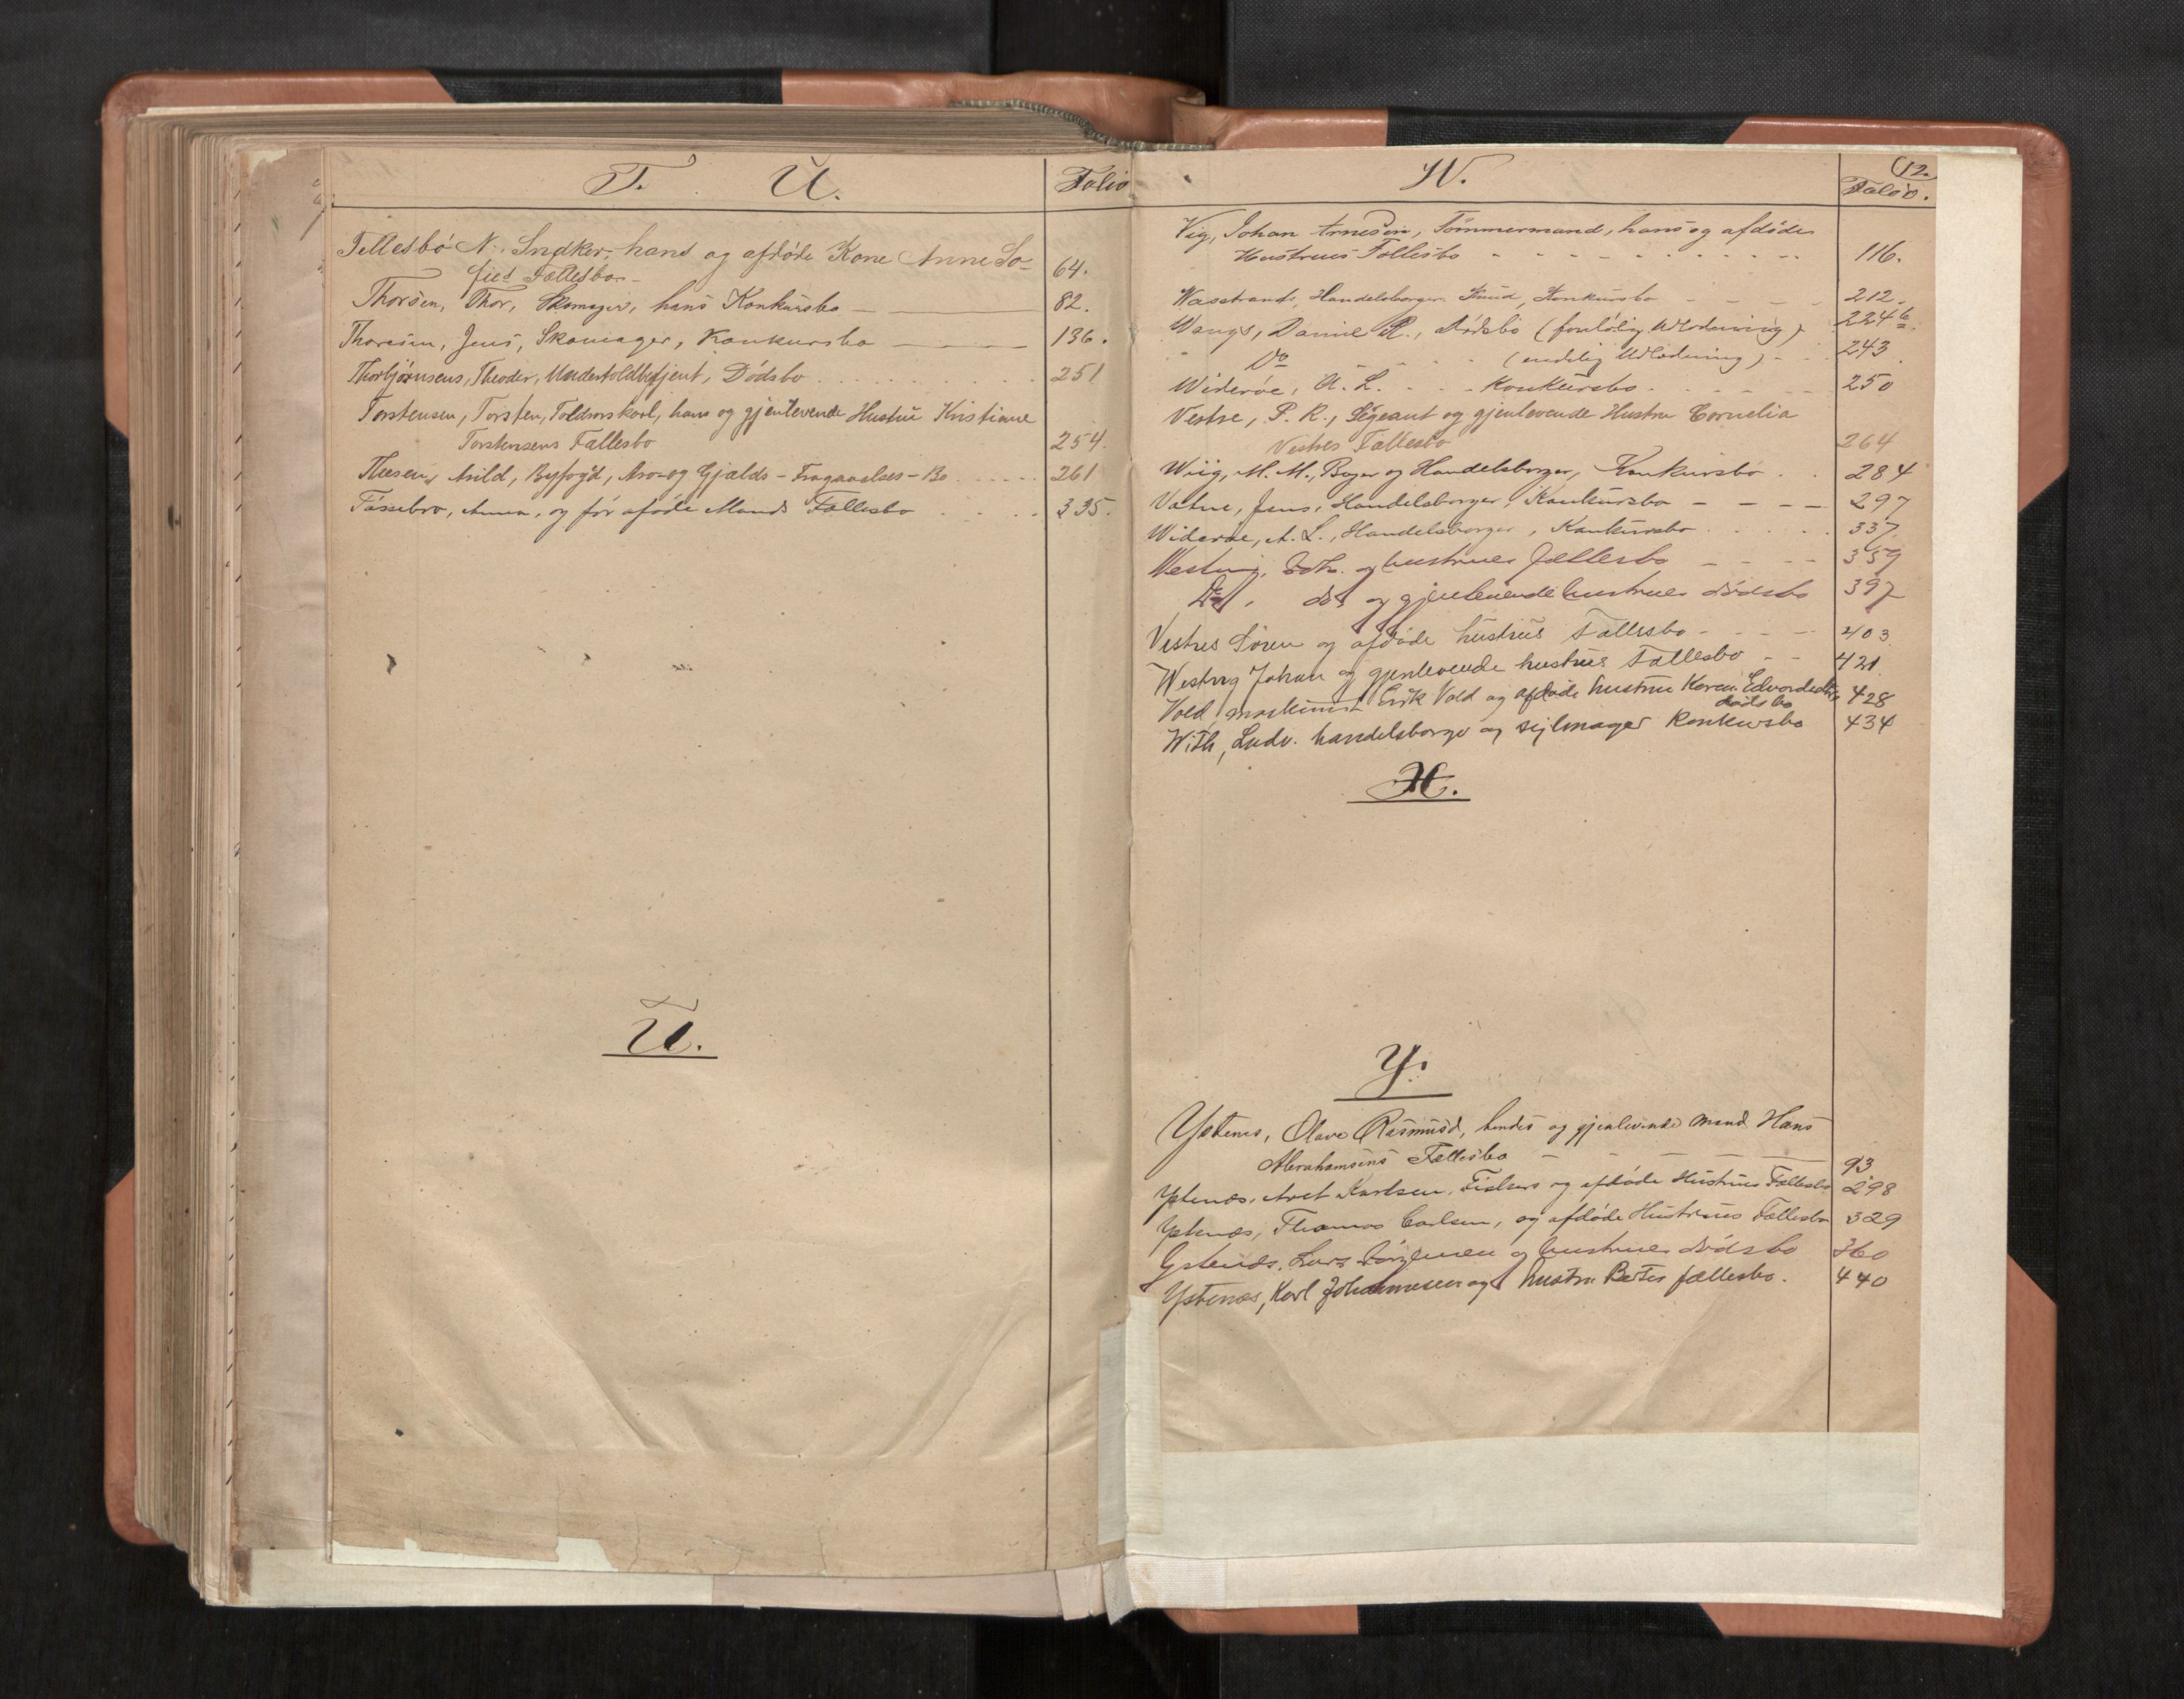 T. U. Folio
Tellesbö N. Snedker, hans og afdöde Kone Anne So-
fies Fællesbo - 64.
Thorsen, Thor, Skomager, hans Konkursbo — 82.
Thoresen, Jens, Skomager, Konkursbo — 136.
Thorbjörnsens, Theodor, Undertoldbetjent, Dödsbo . . . 251
Torstensen, Torsten, Toldrorskarl, hans og gjenlevende Hustru Kristiane
Torstensens Fællesbo 254.
Theesen, Arild, Byfogd, Arv- og Gjælds-Fragaaelses-Bo . . . 261
Tössebro, Anna, og för afdöde Mands Fællesbo . . . 335.
U.
12.
W. Folio.
Vig, Johan Arnesen, Tömmermand, hans og afdödes
Hustrues Fællesbo - - - 116.
Wasstrands, Handelsborger Knud, Konkursbo - - - 212.
Wangs, Daniel R., Dödsbo (forelöbig Udlodning) 224 b.
Do (endelig Udlodning) - 243
Wideröe, A. L. - - - Konkursbo - - - 250
Vestre, P. R., Sergeant og gjenlevende Hustru Cornelia
Vestres Fællesbo 264
Wiig, M. M., Bager og Handelsborger, Konkursbo . 284
Vatne, Jens, Handelsborger, Konkursbo - - - 297
Wideröe, A. L., Handelsborger, Konkursbo . . . 337
Westrig, Joh. og hustrues fællesbo - - - 359
Do, do og gjenlevende hustrues dödsbo 397
Vestres Sören og afdöde hustrus Fællesbo - - - 403
Westrig Johan og gjenlevende hustrues Fællesbo - - 421
Vold, maskinist Erik Vold og afdöde hustru Karen Edvardsdtrs 428
dödsbo
With, Ludv. handelsborger og sejlmager Konkursbo 434
X.
Y.
Ystenes, Olave Rasmusd, hendes og gjenlevende Mand Hans
Abrahamsens Fællesbo - - - 93
Ystenæs, Axel Karlsen, Fiskers og afdöde Hustrues Fællesbo 298
Ystenæs, Thomas Carlsen, og afdöde Hustrues Fællesbo 329
Ystenæs, Lars Jörgensen og hustrues dödsbo 360
Ystenæs, Karl Johannesen og hustru Bertes fællesbo. 440